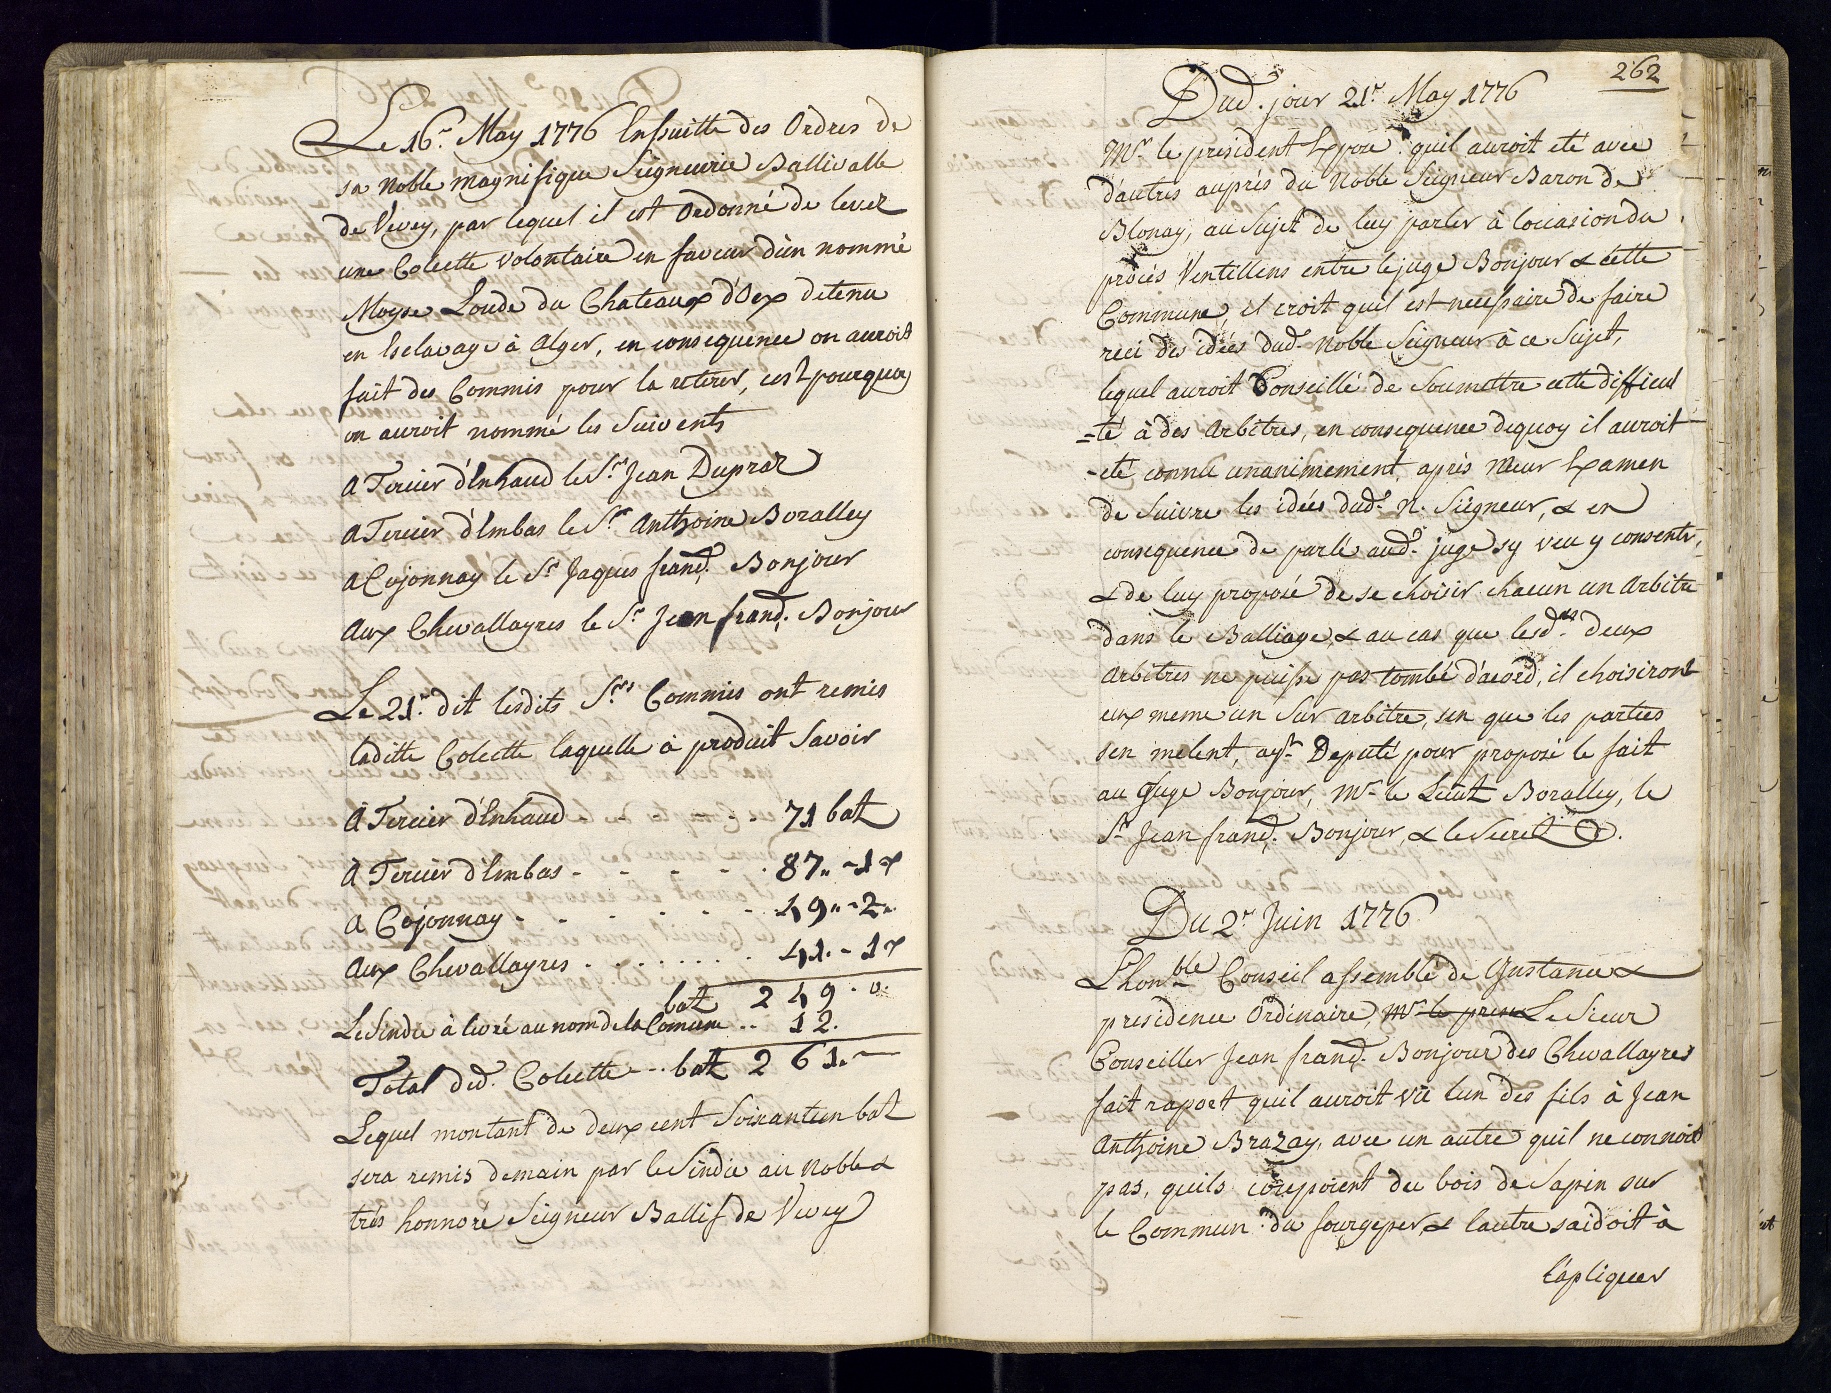 Le 16.e May 1776 Ensuitte des Ordres de
sa Noble magnifique Seigneurie Ballivalle
de Vevey, par lequel il est Ordonné de lever
une Colecte volontaire en faveur d'un nommé
Moyse Loude du Chateaux d'Oex detenu
en Esclavage à Alger, en consequence on auroit
fait des Commis pour la retirer, cest pourquoy
on auroit nommé les Suivents
A Tercier d'Enhaud le Sr. Jean Dupraz
A Tercier d'Embas le Sr. Anthoine Boralley
A Cojonnay le Sr. Jaques franç. Bonjour
Aux Chevallayres le Sr. Jean franç. Bonjour
Le 21.e dit lesdits Srs. Commis ont remis
laditte Colecte laquelle à produit Savoir
A Tercier d'Enhaud - - - - - 71 batz
A Tercier d'Embas - - - - - 87 „ - 1x
A Cojonnay - - - - - - 49 „ - 2 „
Aux Chevallayres - - - - - - 41. - 1x
batz 249 . 0.
Le Sindic à livré au nom de la Comune .. 12.
Total dud. Colecte - .. batz 261. -
Lequel montant de deux cent Soixanteun batz
sera remis demain par le Sindic au Noble &
très honnoré Seigneur Ballif de Vevey
262
Dud. jour 21.e May 1776
Mr. le president Expose quil auroit eté avec
d'autres auprès du Noble Seigneur Baron de
Blonay, au Sujet de luy parler à loccasion du
procès Ventillens entre le juge Bonjour & cette
Commune, il croit quil est necessaire de faire
reci des idées dud. Noble Seigneur à ce Sujet,
lequel auroit Conseillé de Soumettre cette difficul
=té à des Arbitres, en consequence dequoy il auroit
-eté connu unanimement, après meur Examen
de Suivre les idées dud. N. Seigneur, & en
consequence de parlé aud. juge sy veu y consentir,
& de luy proposé de se choisir chacun un Arbitre
dans le Balliage, & au cas que lesd.es deux
Arbitres ne puisse pas tombé d'acord, il choisiront
eux meme un Sur arbitre, sen que les parties
sen melent, ayt. Deputé pour proposé le fait
au Juge Bonjour, Mr. le Lieut Boralley, le
Sr. Jean franç. Bonjour, & le Secret.
Du 2.e Juin 1776
Lhon.ble Conseil assemblé de Gustance &
presidence Ordinaire, Mr. le presi Le Sieur
Conseiller Jean franç. Bonjour des Chevallayres
fait raport quil auroit vû lun des fils à Jean
Anthoine Brazay, avec un autre quil ne connoit
pas, quils coupoient du bois de Sapin sur
le Commun du fourgeper, & lautre saidoit à
lapliquer